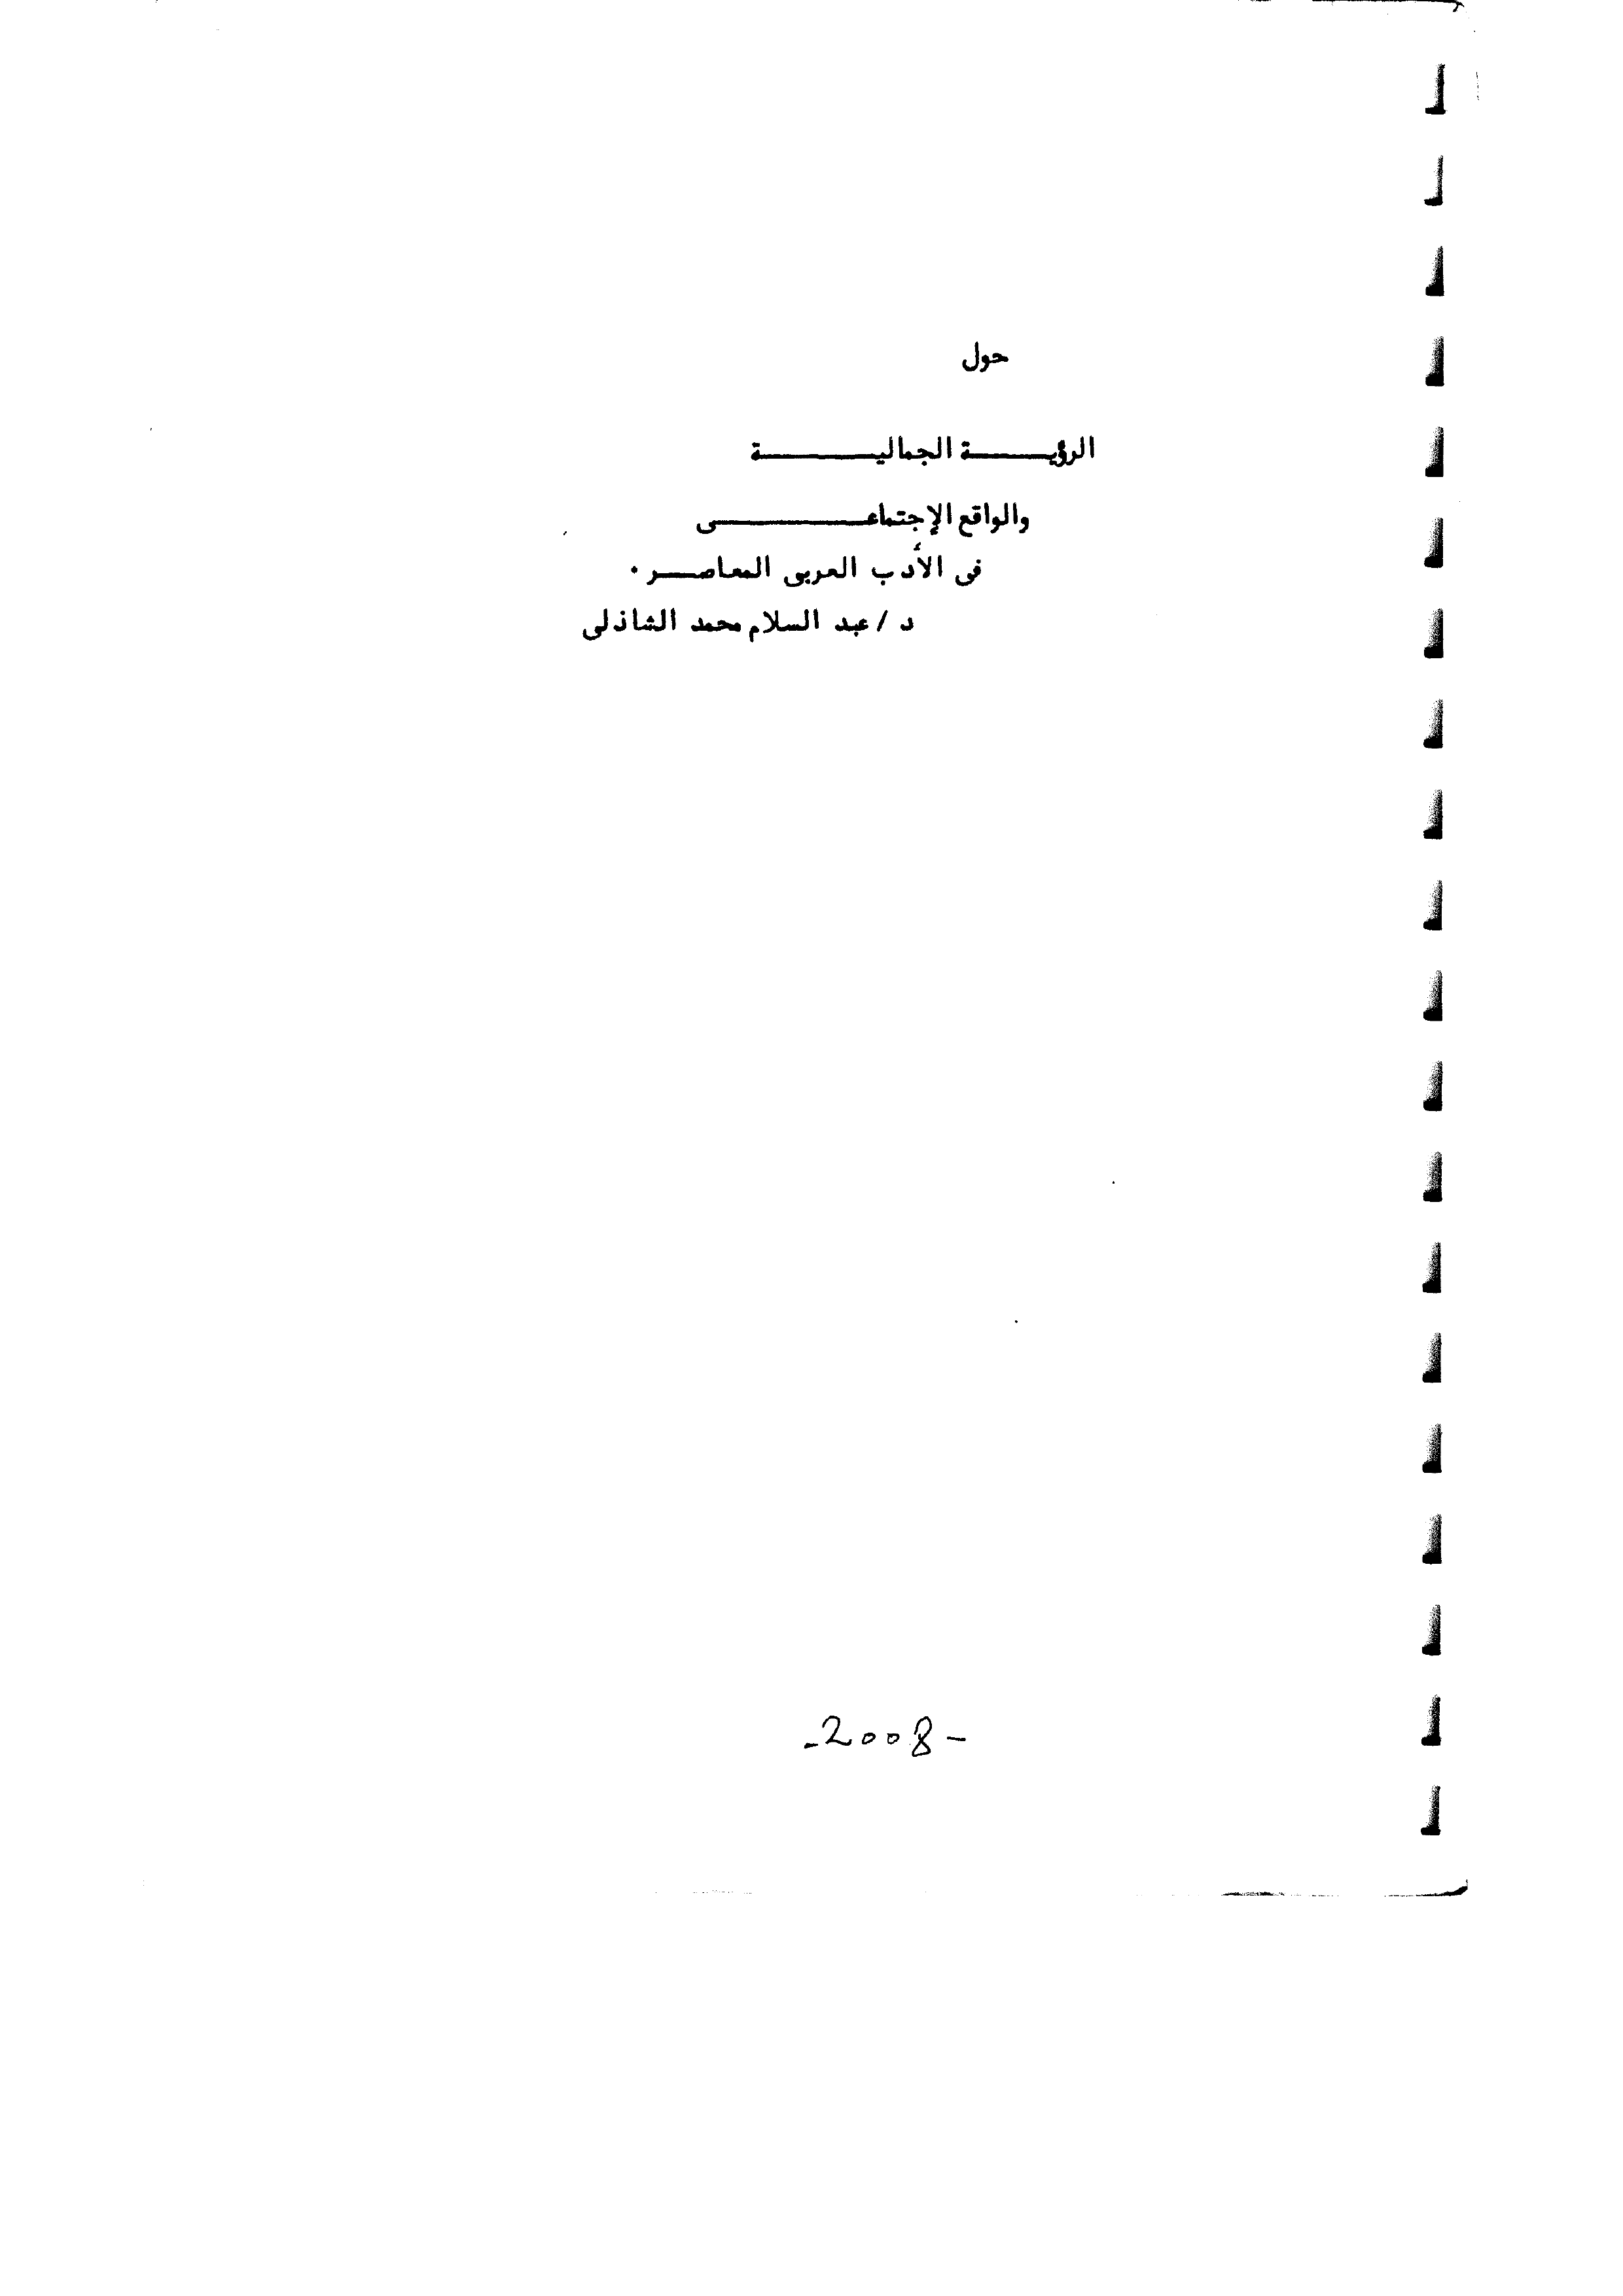 حول
الرؤيـــــة الجماليـــــــة
والواقع الإجتماعـــــــــى
فى الأدب العربى المعاصــر .
د / عبد السلام محمد الشاذلى
-2008-